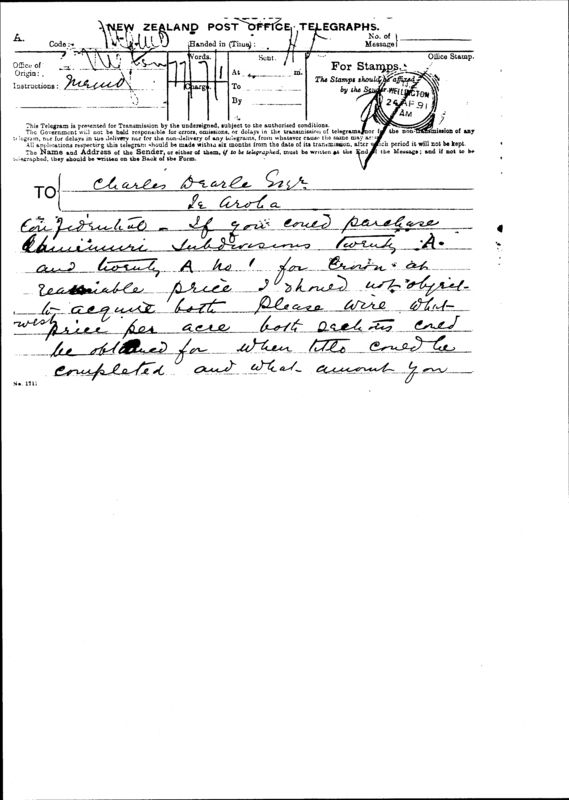 NEW ZEALAND POST OFFICE TELEGRAPHS.
A.
Code:
Handed in (Time):
No. of
Message
Office of
Origin:
Instructions:
Words.
Charge.
Sent.
At m.
To
By
For Stamps.
The Stamps should be affixed
by the Sender.
Office Stamp.
WELLINGTON
AM
This Telegram is presented for Transmission by the undersigned, subject to the authorised conditions.
The Government will not be held responsible for errors, omissions, or delays in the transmission of telegrams, nor for the non-transmission of any
telegram, nor for delays in the delivery nor for the non-delivery of any telegrams, from whatever cause the same may arise.
All applications respecting this telegram should be made within six months from the date of its transmission, after which period it will not be kept.
The Name and Address of the Sender, or either of them, if to be telegraphed, must be written at the End of the Message; and if not to be
telegraphed, they should be written on the Back of the Form.
TO
Charles Dearle Esqr
Te Aroha
Confidential - If you could purchase
Ohinemuri Subdivisions Twenty A.
and twenty A No 1 for Crown at
reasonable price I should not object
to acquire both Please wire what
price per acre both sections could
be obtained for when title could be
completed and what amount you